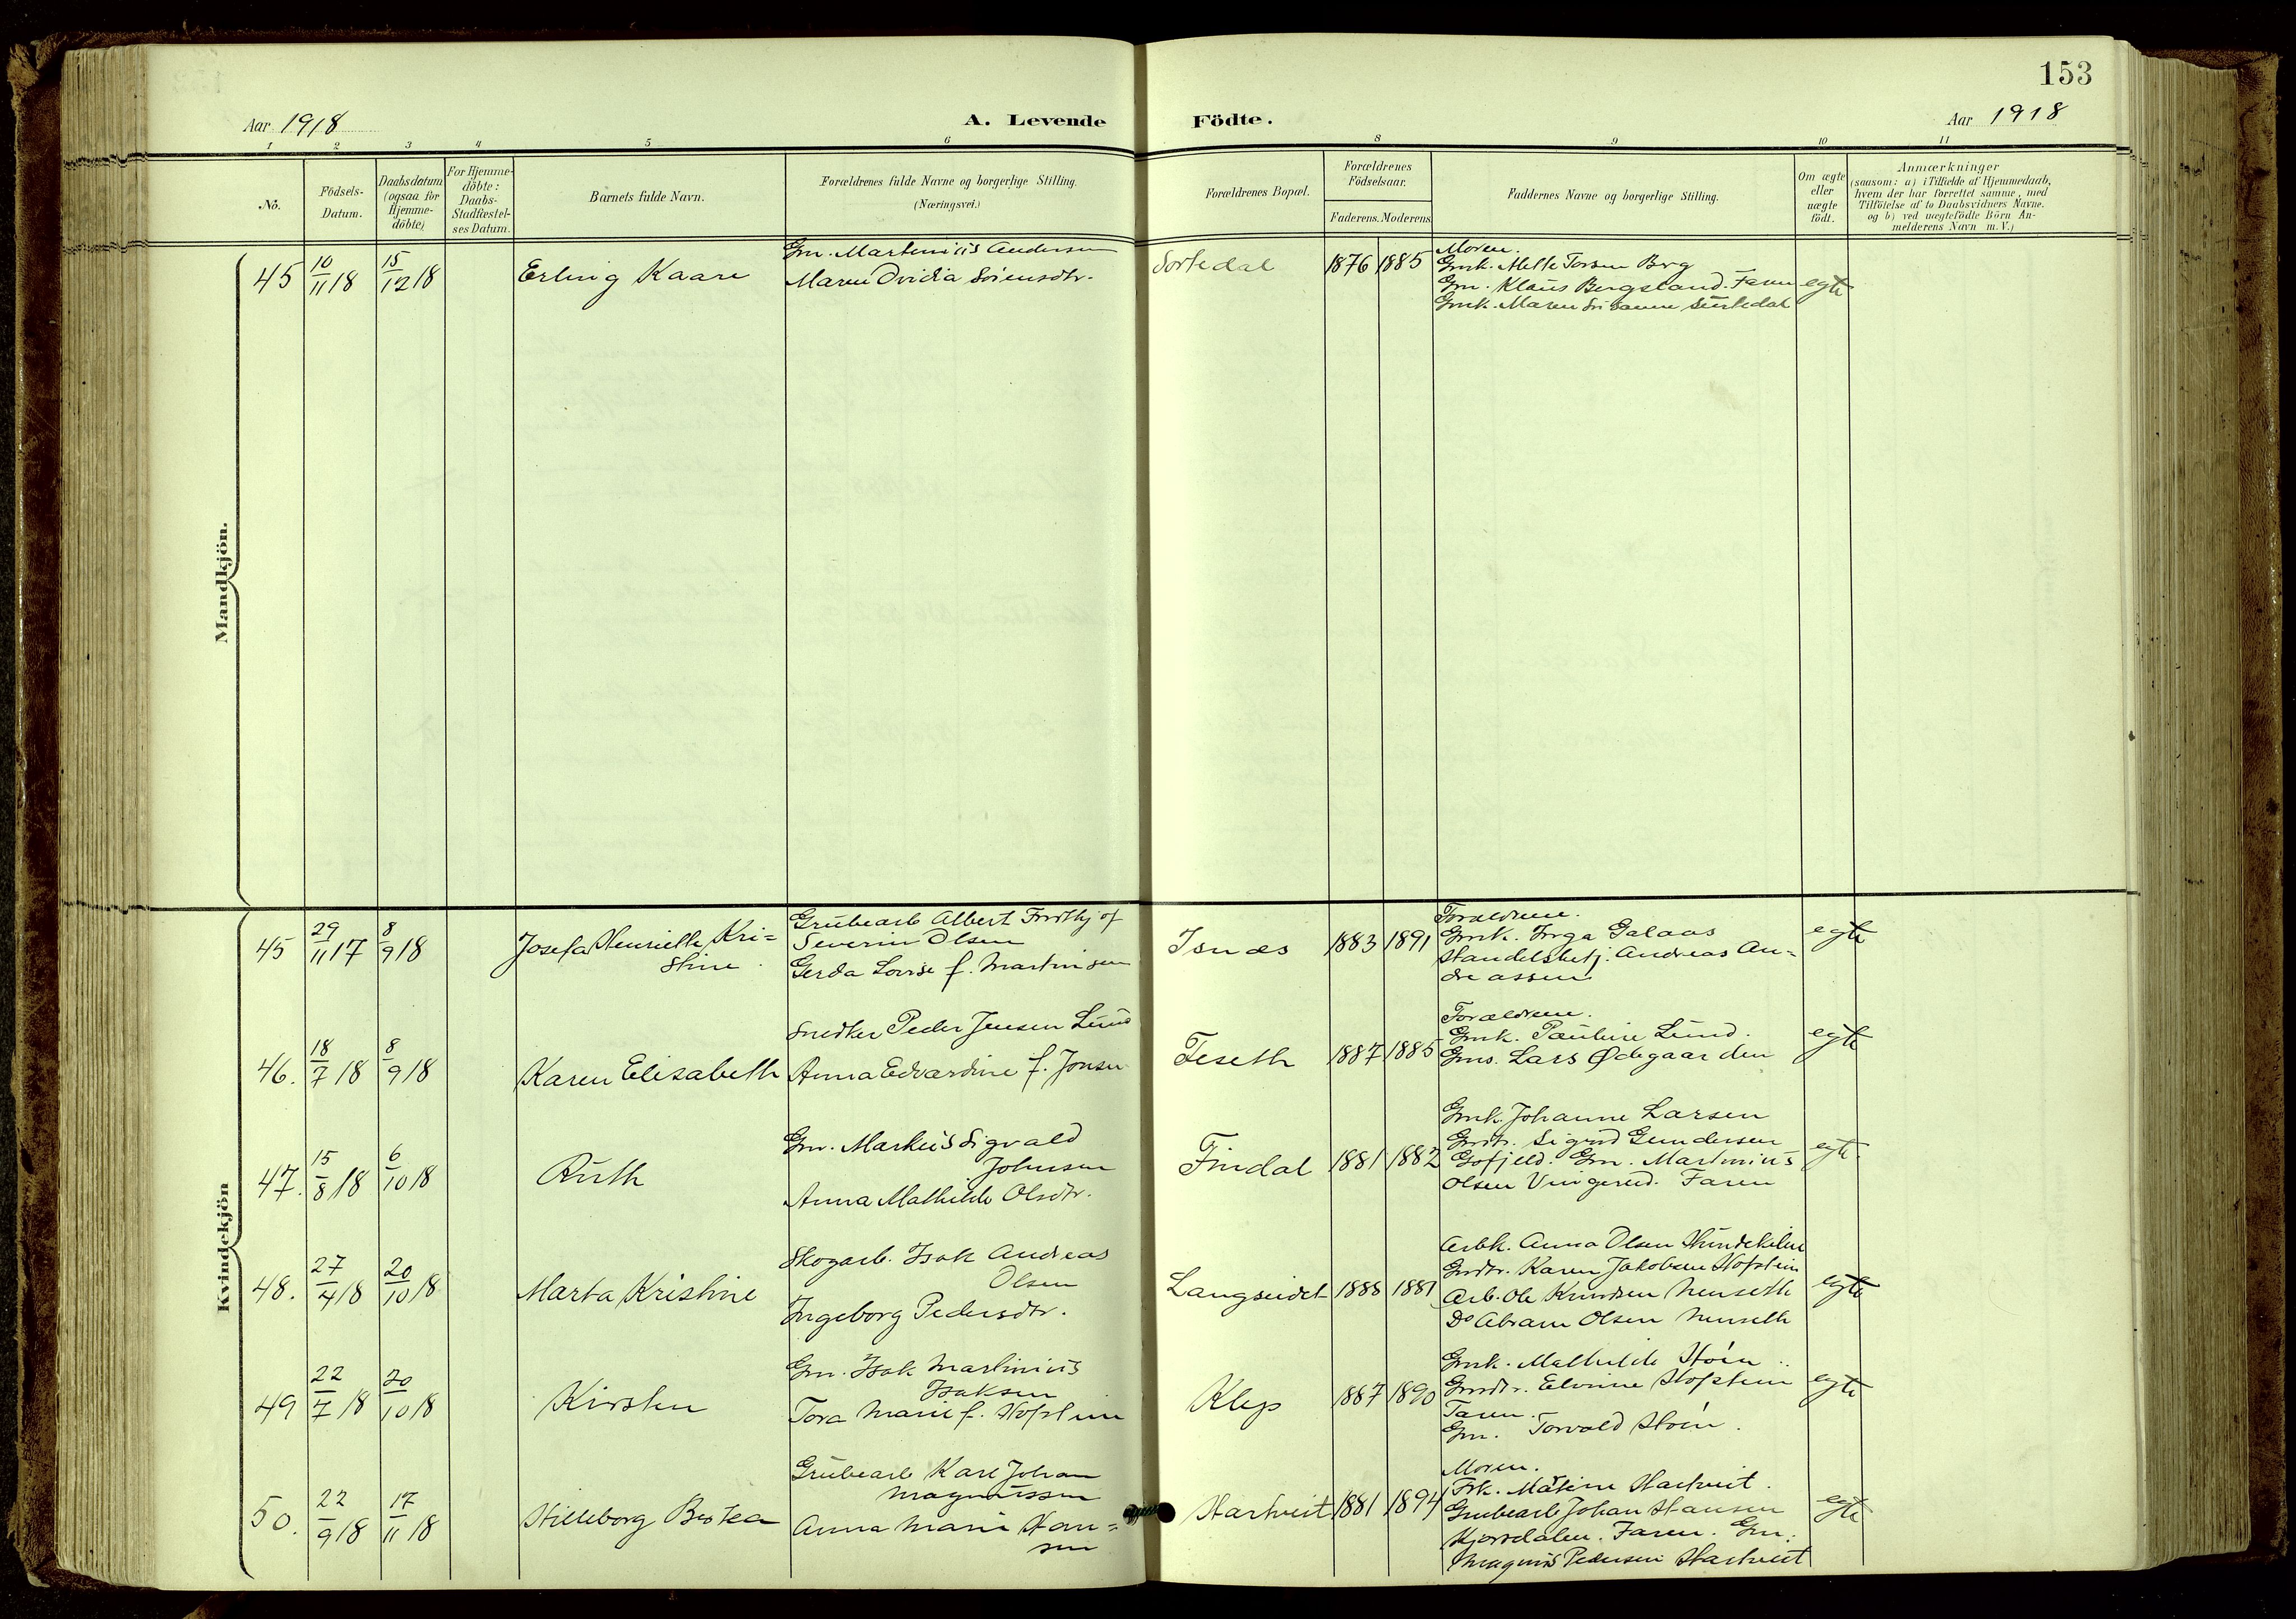 153
Aar 1918
A. Levende Födte.
Aar 1918
1 2 3 4 5 6 8 9 10 11
No.
Födsels-
Datum.
Daabsdatum
(ogsaa for
Hjemme-
döbte)
For Hjemme-
döbte:
Daabs-
Stadfæstel-
ses Datum.
Barnets fulde Navn.
Forældrenes fulde Navne og borgerlige Stilling.
(Næringsvei.)
Forældrenes Bopæl.
Forældrenes
Födselsaar.
Faderens. Moderens
Faddernes Navne og borgerlige Stilling.
Om ægte
eller
uægte
födt.
Anmærkninger
(saasom: a) i Tilfælde af Hjemmedaab,
hvem der har forrettet samme, med
Tilföielse af to Daabsvidners Navne.
og b) ved uægtefödte Börn An-
melderens Navn m. V.)
Mandkjön.
45
10/11 18
15/12 18
Erling Kaare
Gm. Martinius Andersen
Maren Ovidia Sörensdtr.
Sortedal
1876 1885
Moren.
Gmk. Mette Torsen Berg
Gm. Klaus Bergsland. Faren
Gmk. Maren Surtedal
egte
Kvindekjön
45
29/11 17
8/9 18
Josefa Henriette Kri=
stine.
Grubearb Albert Fridthjof
Severin Olsen
Gerda Lovise f. Martinsen
Isnæs
1883 1891
Forældrene.
Gmk. Inga Galaas
Handelsbetj. Andreas An=
dreassen
egte
46.
18/7 18
8/9 18
Karen Elisabeth
Snedker Peder Jensen Lund
Anna Edvardine f. Jonsen
Teseth
1887 1885
Forældrene.
Gmk. Pauline Lund.
Gms. Lars Ødegaarden
egte
47.
15/8 18
6/10 18
Ruth
Gm. Markus Sigvald
Johnsen
Anna Mathilde Olsdtr.
Findal
1881 1882
Gmk. Johanne Larsen
Gmdtr. Sigrid Gundersen
Gofjeld. Gm. Martinius
Olsen Vingerud. Faren
egte
48.
27/4 18
20/10 18
Marta Kristine
Skogarb. Isak Andreas
Olsen
Ingeborg Pedersdtr.
Langseidet
1888 1881
Arbk. Anna Olsen Hundekilen
Gmdtr. Karen Jakobsen Hofstein
Arb. Ole Knudsen Menseth
Do Abram Olsen Menseth
egte
49
22/7 18
20/10 18
Kirsten
Gm. Isak Martinius
Isaksen
Tora Marie f. Hofstein
Klep
1887 1890
Gmk. Mathilde
Gmdtr. Elvine Hofstein
Faren.
Gm. Torvald
egte
50.
22/9 18
17/11 18
Hilleborg Botea
Grubearb Karl Johan
Magnussen
Anna Marie Han=
sen
Hartveit
1881 1894
Moren.
Frk. Matine Hartveit.
Grubearb Johan Hansen
Kjørrdalen. Faren. Gm.
Magnus Pedersen Hartveit
egte